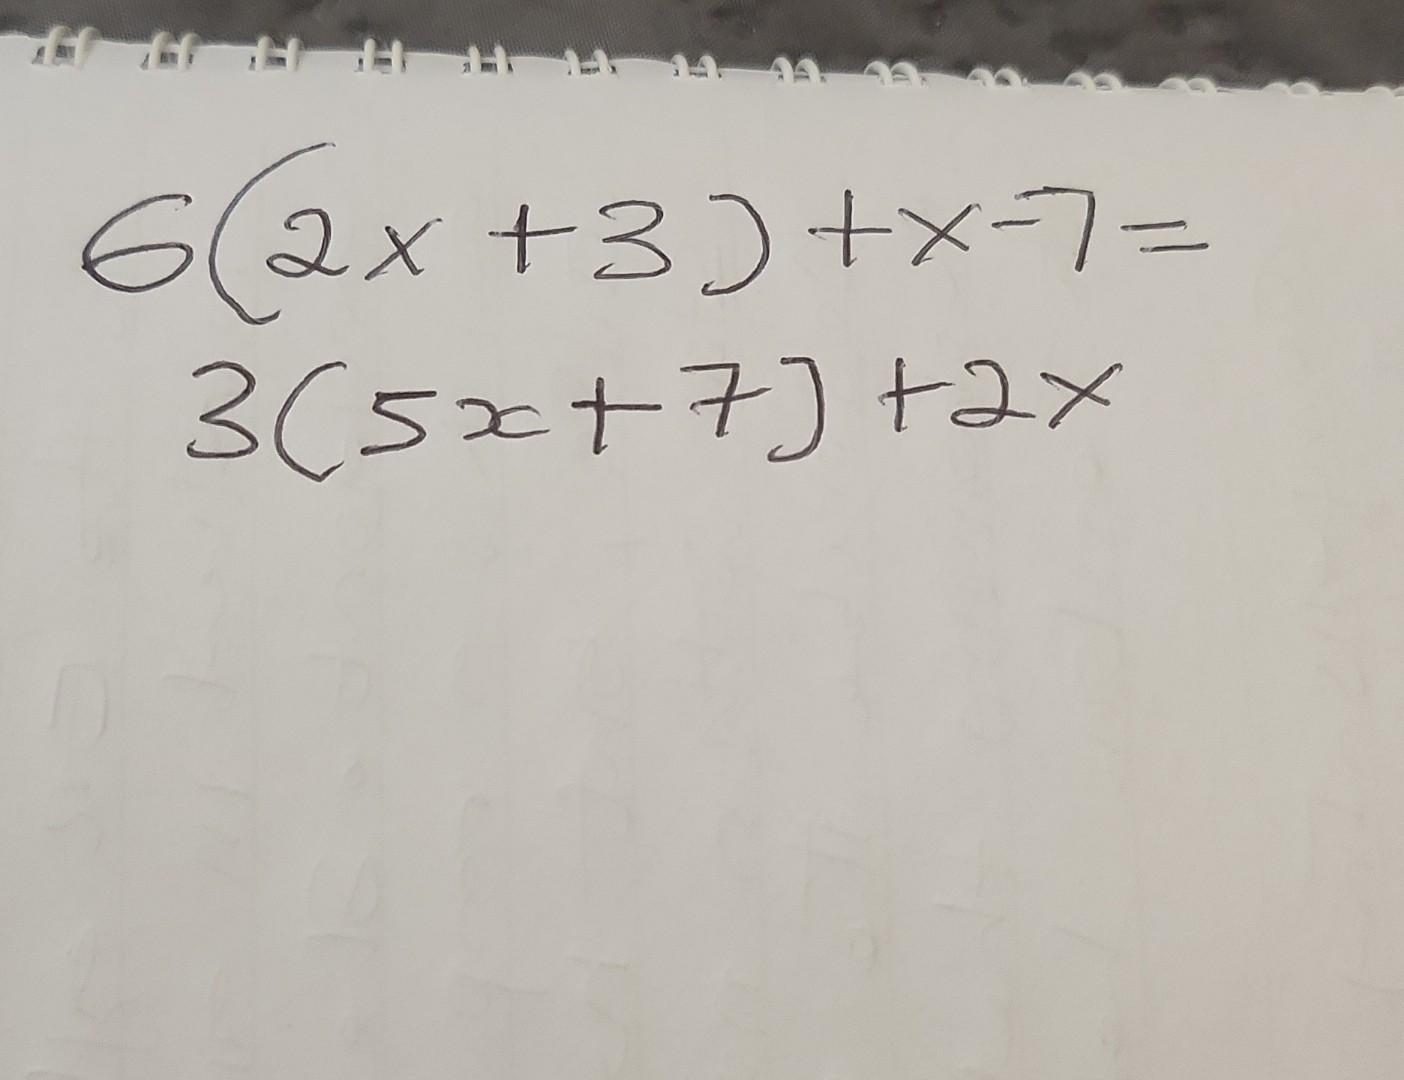 6(2x+3)+x-7=
3(5x+7)+2x